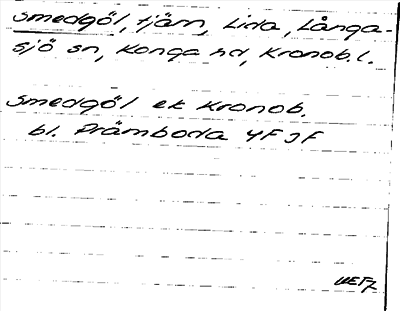 Smedgöl, tjärn, Lida, Långa-
sjö sn, Konga hd, Kronob.l.
Smedgöl ek Kronob.
bl. Prämboda 4F JF